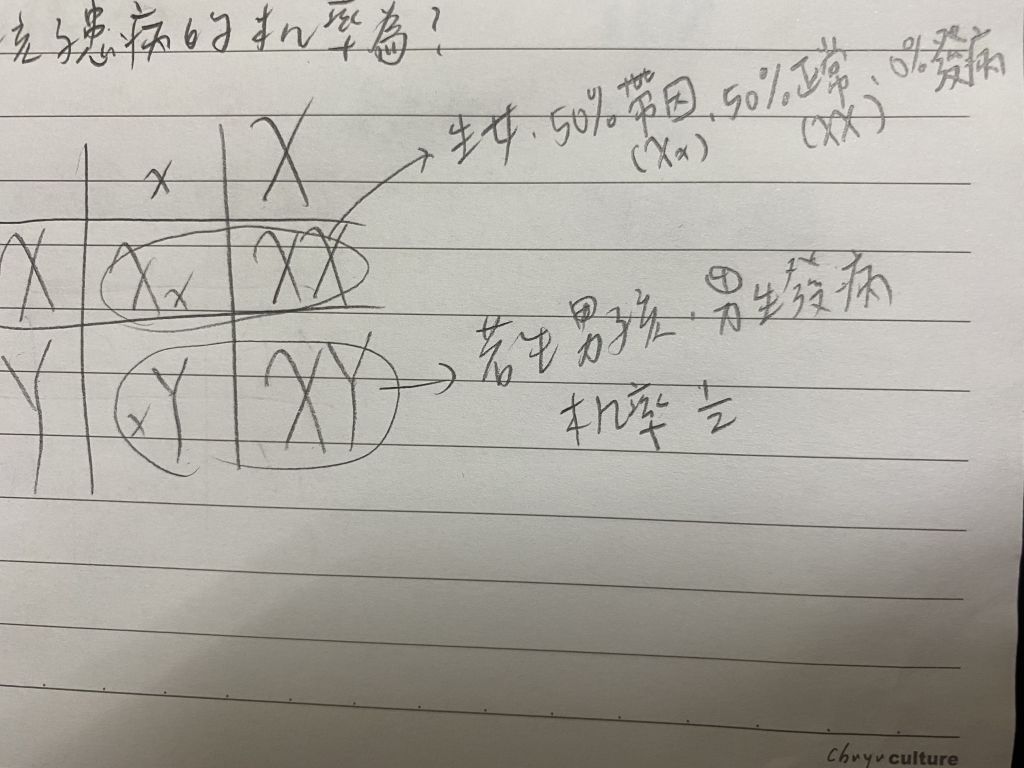 孩子患病的机率為?
x X
生女、50%帶因、50%正常、0%發病
(Xx) (XX)
X Xx XX
若生男孩、男生發病
机率 1/2
Y xY XY
Chuyu culture